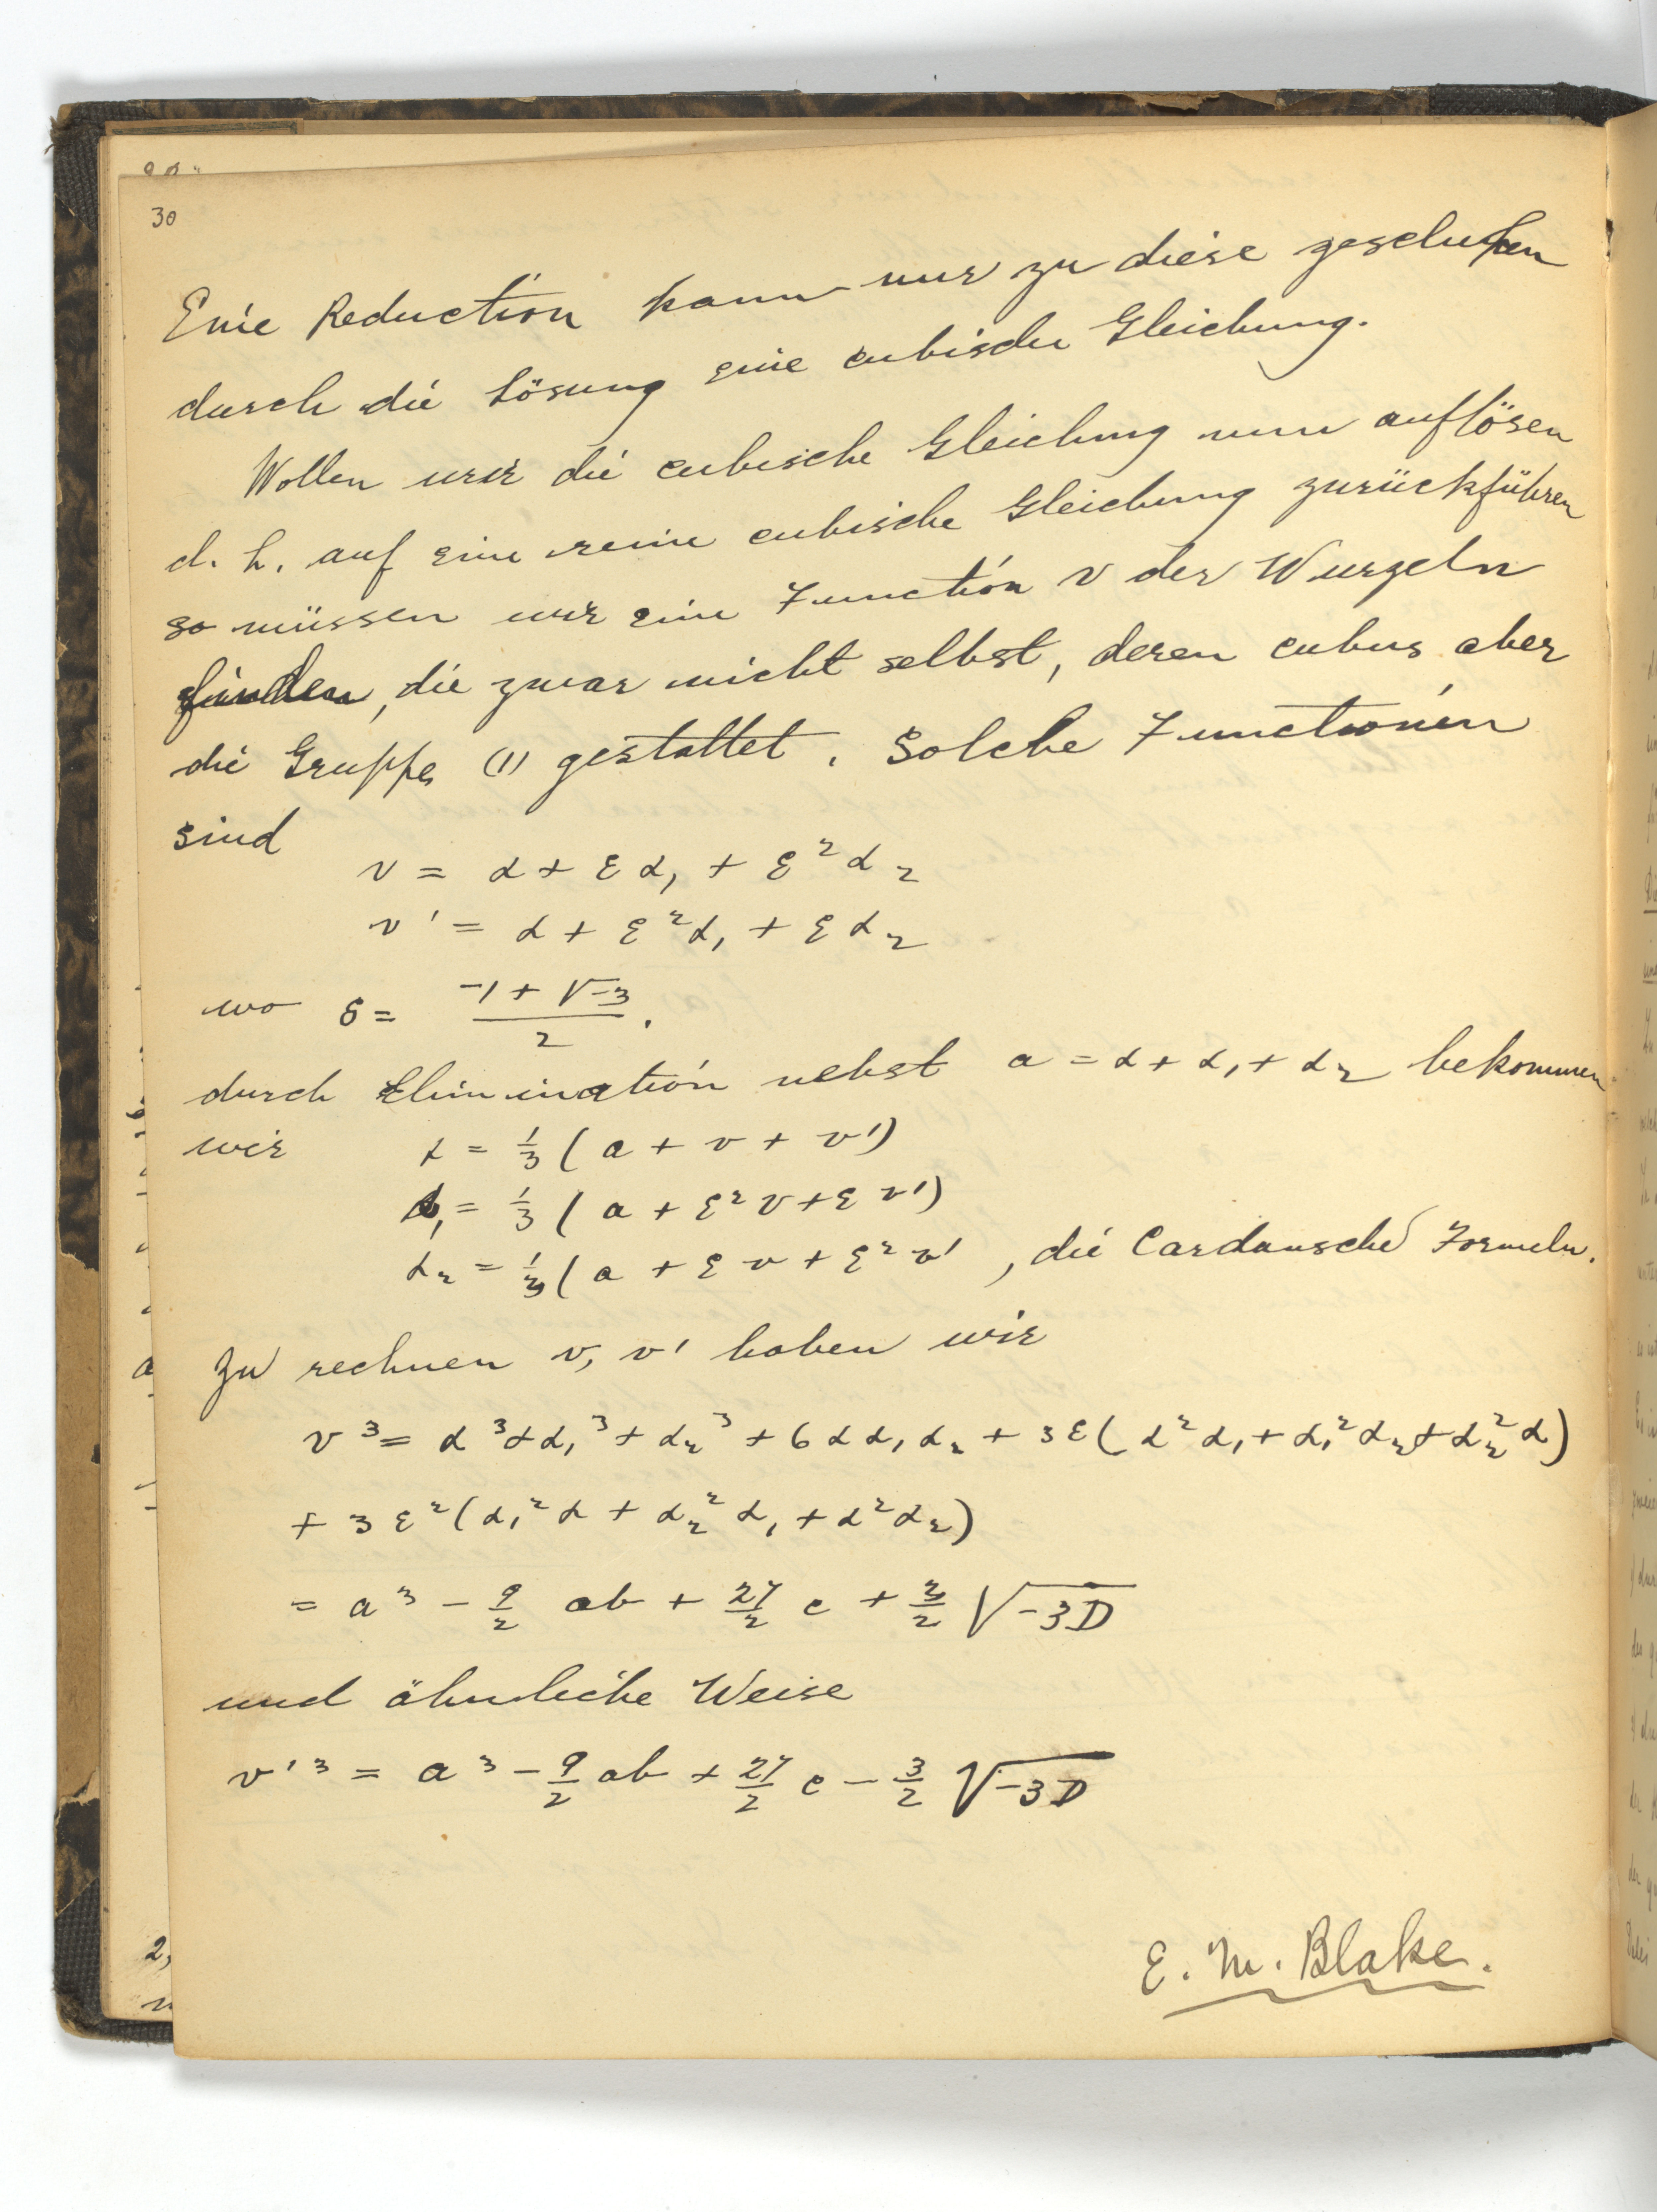 30
Eine Reduction kann nur zu diese geschehen
durch die Lösung eine cubische Gleichung.
Wollen wir die cubische Gleichung nun auflösen
d. h. auf eine reine cubische Gleichung zurückführen
so müssen wir eine Function v der Wurzeln
finden, die zwar nicht selbst, deren cubus aber
die Gruppe (1) gestattet. Solche Functionen
sind
v = α + εα₁ + ε²α₂
v' = α + ε²α₁ + εα₂
wo ε = (-1 + √-3)/2.
durch Elimination nebst a = α + α₁ + α₂ bekommen
wir α = 1/3 (a + v + v')
α₁ = 1/3 (a + ε²v + εv')
α₂ = 1/3 (a + εv + ε²v' , die Cardansche Formeln.
Zu rechnen v, v' haben wir
v³ = α³ + α₁³ + α₂³ + 6αα₁α₂ + 3ε(α²α₁ + α₁²α₂ + α₂²α)
+ 3ε²(α₁²α + α₂²α₁ + α²α₂)
= a³ - 9/2 ab + 27/2 c + 3/2 √-3D
und ähnliche Weise
v'³ = a³ - 9/2 ab + 27/2 c - 3/2 √-3D
E. M. Blake.